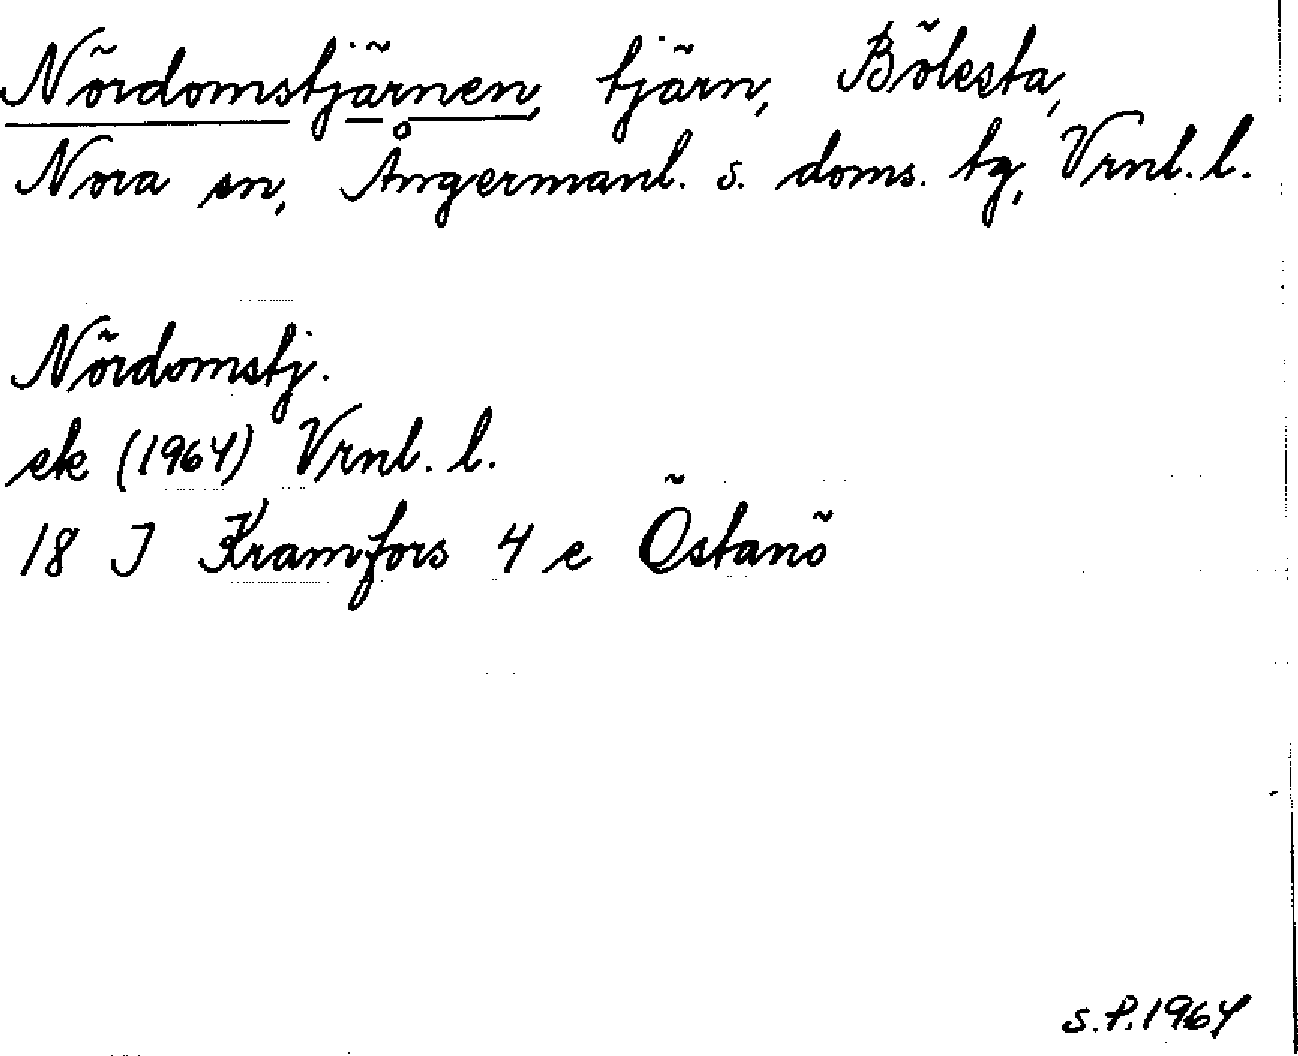 Nördomstjärnen, tjärn, Bölesta,
Nora sn, Ångermanl. s. doms. tg, Vrnl. l.
Nördomstj.
ek (1964) Vrnl. l.
18 J Kramfors 4 e Östanö
S.P. 1964